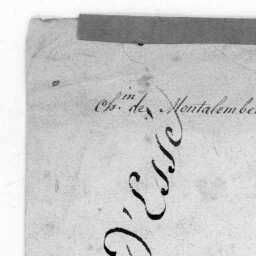 Ch.in de Montalembe
D'Essé